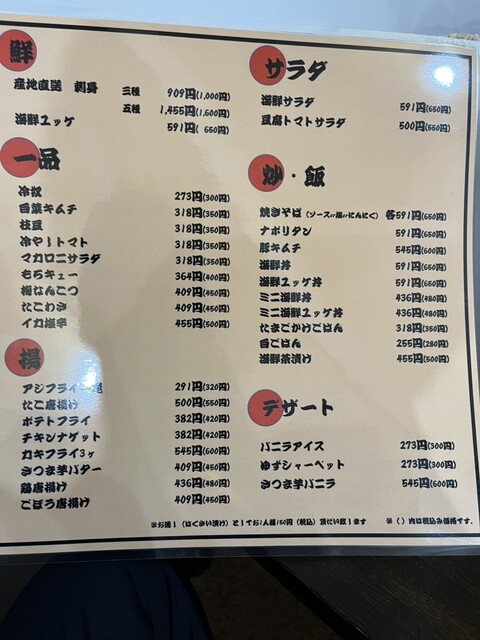 鮮
産地直送 刺身 三種 909円(1,000円)
五種 1,455円(1,600円)
海鮮ユッケ 591円(650円)
一品
冷奴 273円(300円)
白菜キムチ 318円(350円)
枝豆 318円(350円)
冷やしトマト 318円(350円)
マカロニサラダ 318円(350円)
もろキュー 364円(400円)
梅なんこつ 409円(450円)
たこわさ 409円(450円)
イカ塩辛 455円(500円)
揚
アジフライ 291円(320円)
たこ唐揚げ 500円(550円)
ポテトフライ 382円(420円)
チキンナゲット 382円(420円)
カキフライ3ヶ 545円(600円)
さつま芋バター 409円(450円)
鶏唐揚げ 436円(480円)
ごぼう唐揚げ 409円(450円)
サラダ
海鮮サラダ 591円(650円)
豆腐トマトサラダ 500円(550円)
炒・飯
焼きそば(ソースor塩orにんにく) 各591円(650円)
ナポリタン 591円(650円)
豚キムチ 545円(600円)
海鮮丼 591円(650円)
海鮮ユッケ丼 591円(650円)
ミニ海鮮丼 436円(480円)
ミニ海鮮ユッケ丼 436円(480円)
たまごかけごはん 318円(350円)
白ごはん 255円(280円)
海鮮茶漬け 455円(500円)
デザート
バニラアイス 273円(300円)
ゆずシャーベット 273円(300円)
さつま芋バニラ 545円(600円)
※お通し(はくさい漬け)としてお1人様150円(税込)頂だい致します ※()内は税込み価格です。